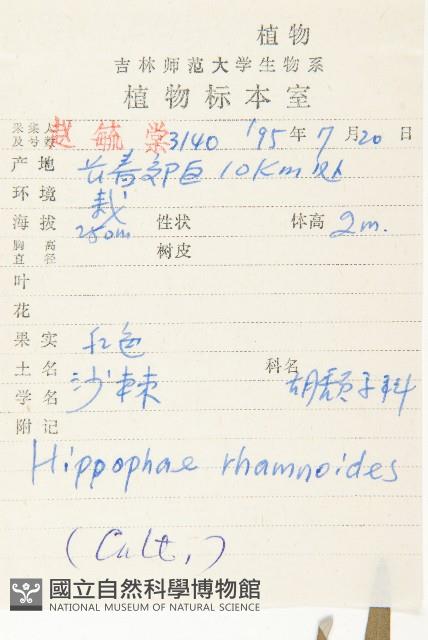 植物
吉林师范大学生物系
植物标本室
采集人及号数 赵毓棠 3140 '95年7月20日
产地 长春郊区10Km处
环境 栽
海拔 250m 性状 体高 2m.
胸高直径 树皮
叶
花
果实 红色
土名 沙棘 科名 胡颓子科
学名
附记
Hippophae rhamnoides
(Cult,)
國立自然科學博物館
NATIONAL MUSEUM OF NATURAL SCIENCE